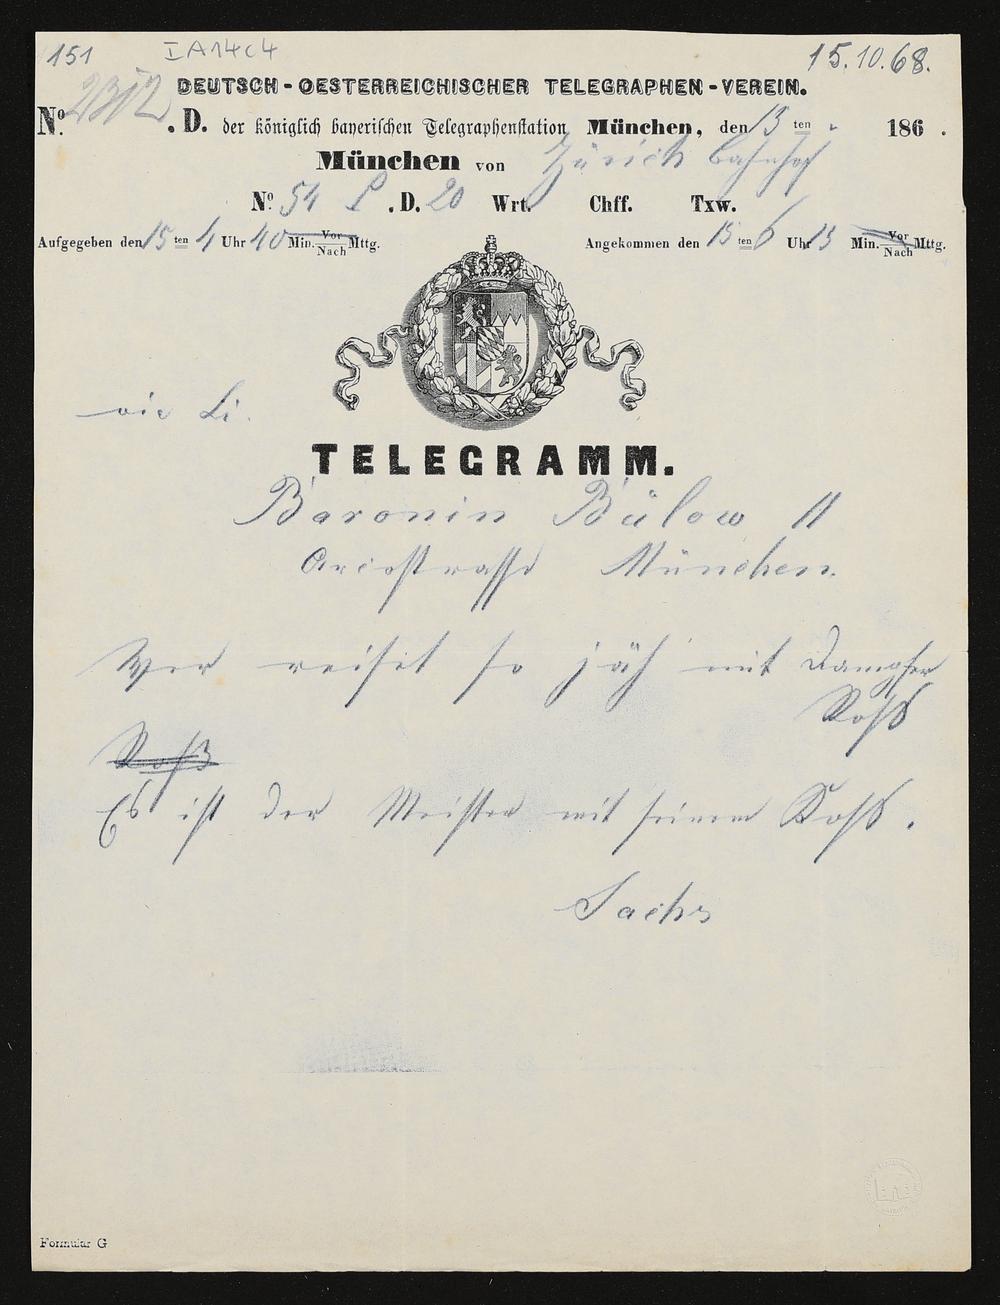 151 IA14c4 15.10.68.
DEUTSCH-OESTERREICHISCHER TELEGRAPHEN-VEREIN.
No. 2312 . D. der königlich bayerischen Telegraphenstation München, den 15 ten 186 .
München von Zürich Bahnhof
No 54 P .D. 20 Wrt. Chff. Txw.
Aufgegeben den 15 ten 4 Uhr 40 Min. Vor Nach Mttg. Angekommen den 15 ten 6 Uhr 15 Min. Vor Nach Mttg.
via Li.
TELEGRAMM.
Baronin Bülow 11
Arcostrasse München.
Wer reiset so jäh mit Dampfer
Roß
Roß
Es ist der Meister mit seinem Koß.
Sachs
Formular G